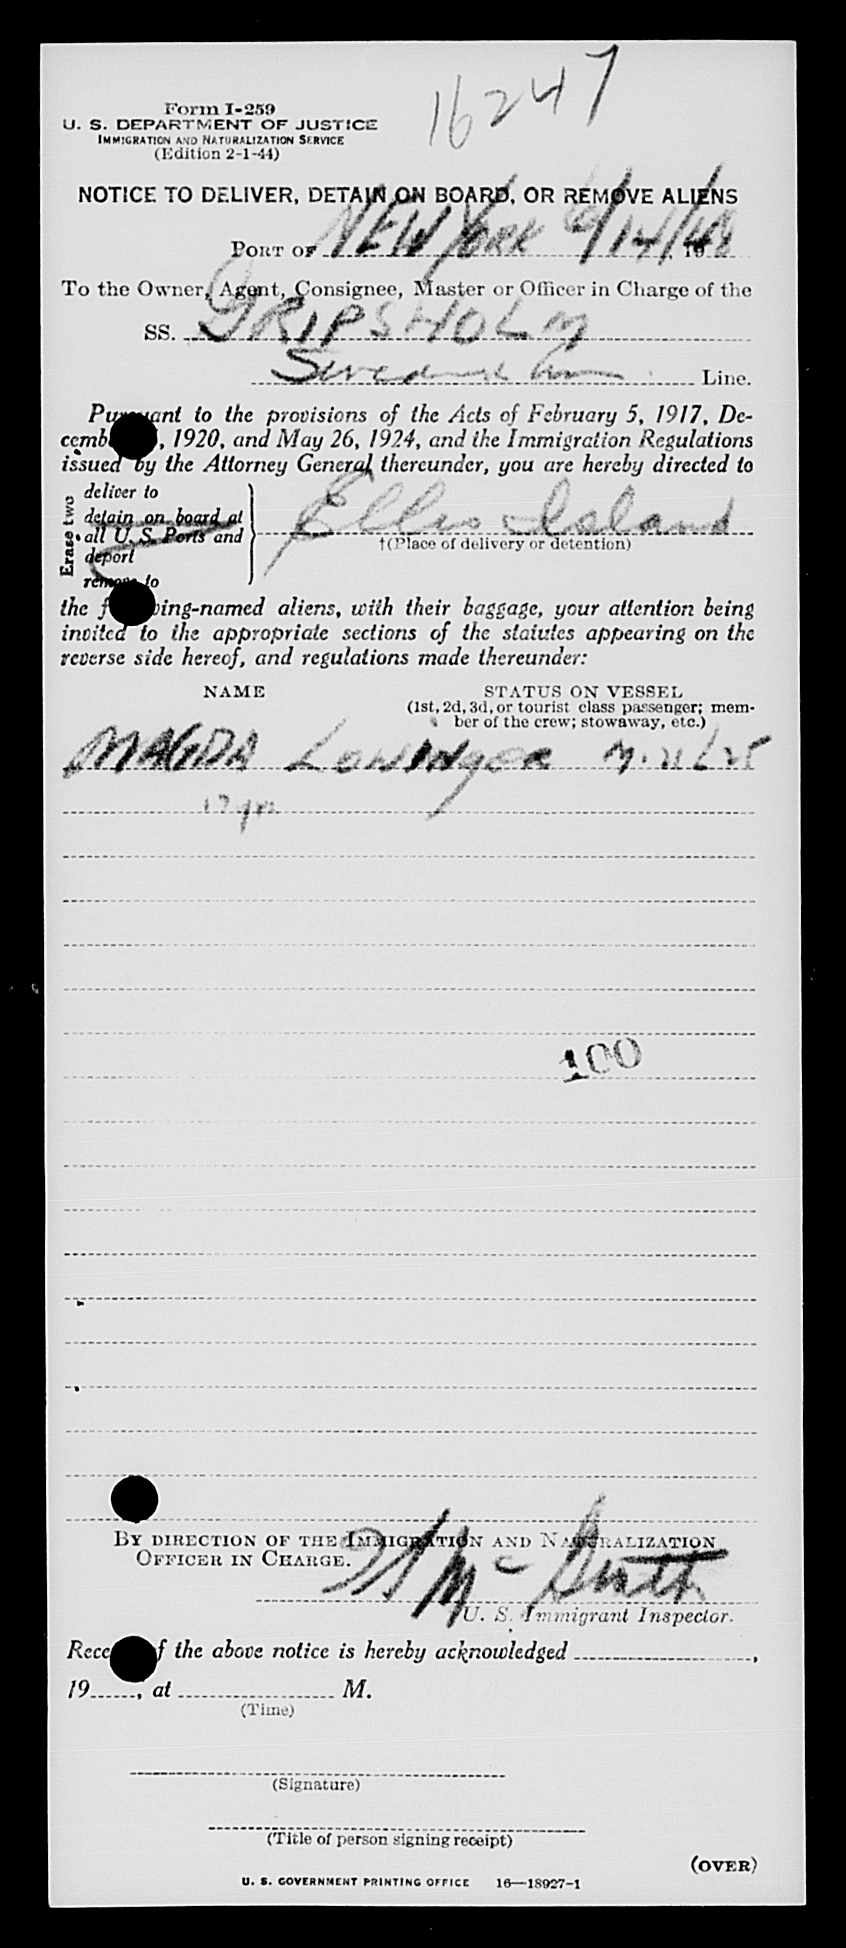 16247
Form I-259
U. S. DEPARTMENT OF JUSTICE
IMMIGRATION AND NATURALIZATION SERVICE
(Edition 2-1-44)
NOTICE TO DELIVER, DETAIN ON BOARD, OR REMOVE ALIENS
PORT OF NEW YORK 6/14/1948
To the Owner, Agent, Consignee, Master or Officer in Charge of the
SS. GRIPSHOLM
Swedish Am Line.
Pursuant to the provisions of the Acts of February 5, 1917, De-
cemb , 1920, and May 26, 1924, and the Immigration Regulations
issued by the Attorney General thereunder, you are hereby directed to
Erase two
deliver to
detain on board at
all U. S. Ports and
deport
remove to
Ellis Island
†(Place of delivery or detention)
the f ing-named aliens, with their baggage, your attention being
invited to the appropriate sections of the statutes appearing on the
reverse side hereof, and regulations made thereunder:
NAME STATUS ON VESSEL
(1st, 2d, 3d, or tourist class passenger; mem-
ber of the crew; stowaway, etc.)
MAGDA LOWINGER M. 21 L 25
17 yrs
100
BY DIRECTION OF THE IMMIGRATION AND NATURALIZATION
OFFICER IN CHARGE.
U. S. Immigrant Inspector.
Rece f the above notice is hereby acknowledged ,
19 , at M.
(Time)
(Signature)
(Title of person signing receipt)
(OVER)
U. S. GOVERNMENT PRINTING OFFICE 16—18927-1